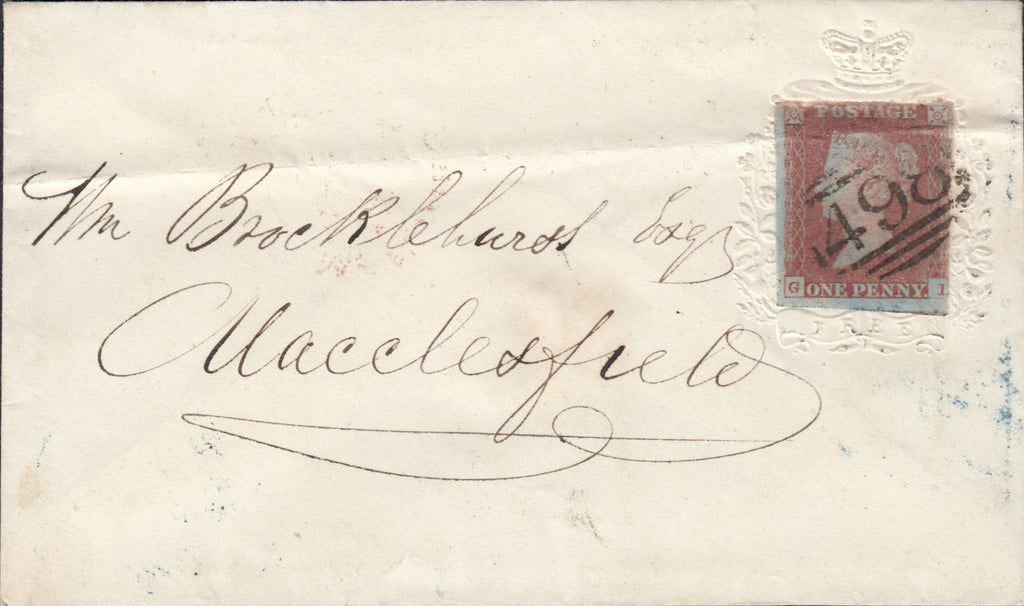 POSTAGE
498
G ONE PENNY. I
FREE
Wm Brocklehurst Esqr
Macclesfield